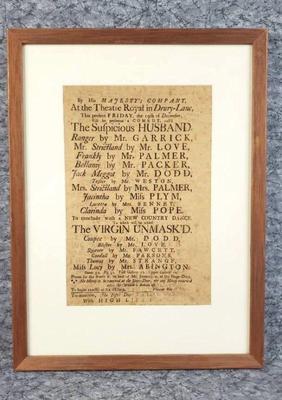 By His MAJESTY's COMPANY,
At the Theatre Royal in Drury-Lane,
This present FRIDAY, the of December,
Will be presented a COMEDY, call'd
The Suspicious HUSBAND.
Ranger by Mr. GARRICK,
Mr. Strictland by Mr. LOVE,
Frankly by Mr. PALMER,
Bellamy by Mr. PACKER,
Jack Meggot by Mr. DODD,
Tester by Mr. WESTON,
Mrs. Strictland by Mrs. PALMER,
Jacintha by Miss PLYM,
Lucetta by Mrs. BENNET,
Clarinda by Miss POPE.
To conclude with a NEW COUNTRY DANCE.
To which will be added
The VIRGIN UNMASK'D.
Coupee by Mr. DODD,
Blister by Mr. LOVE,
Quaver by Mr. FAWCETT,
Goodwill by Mr. PARSONS,
Thomas by Mr. STRANGE,
Miss Lucy by Mrs. ABINGTON.
To begin exactly at
With HIGH LIFE